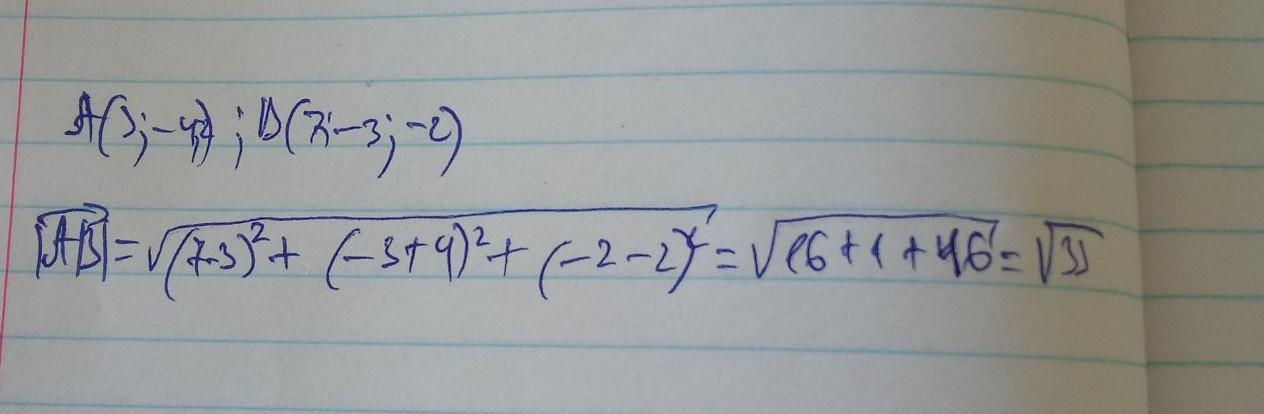 A(3;-4;2); B(7;-3;-2)
|AB| = √(7-3)² + (-3+4)² + (-2-2)² = √16+1+16 = √33